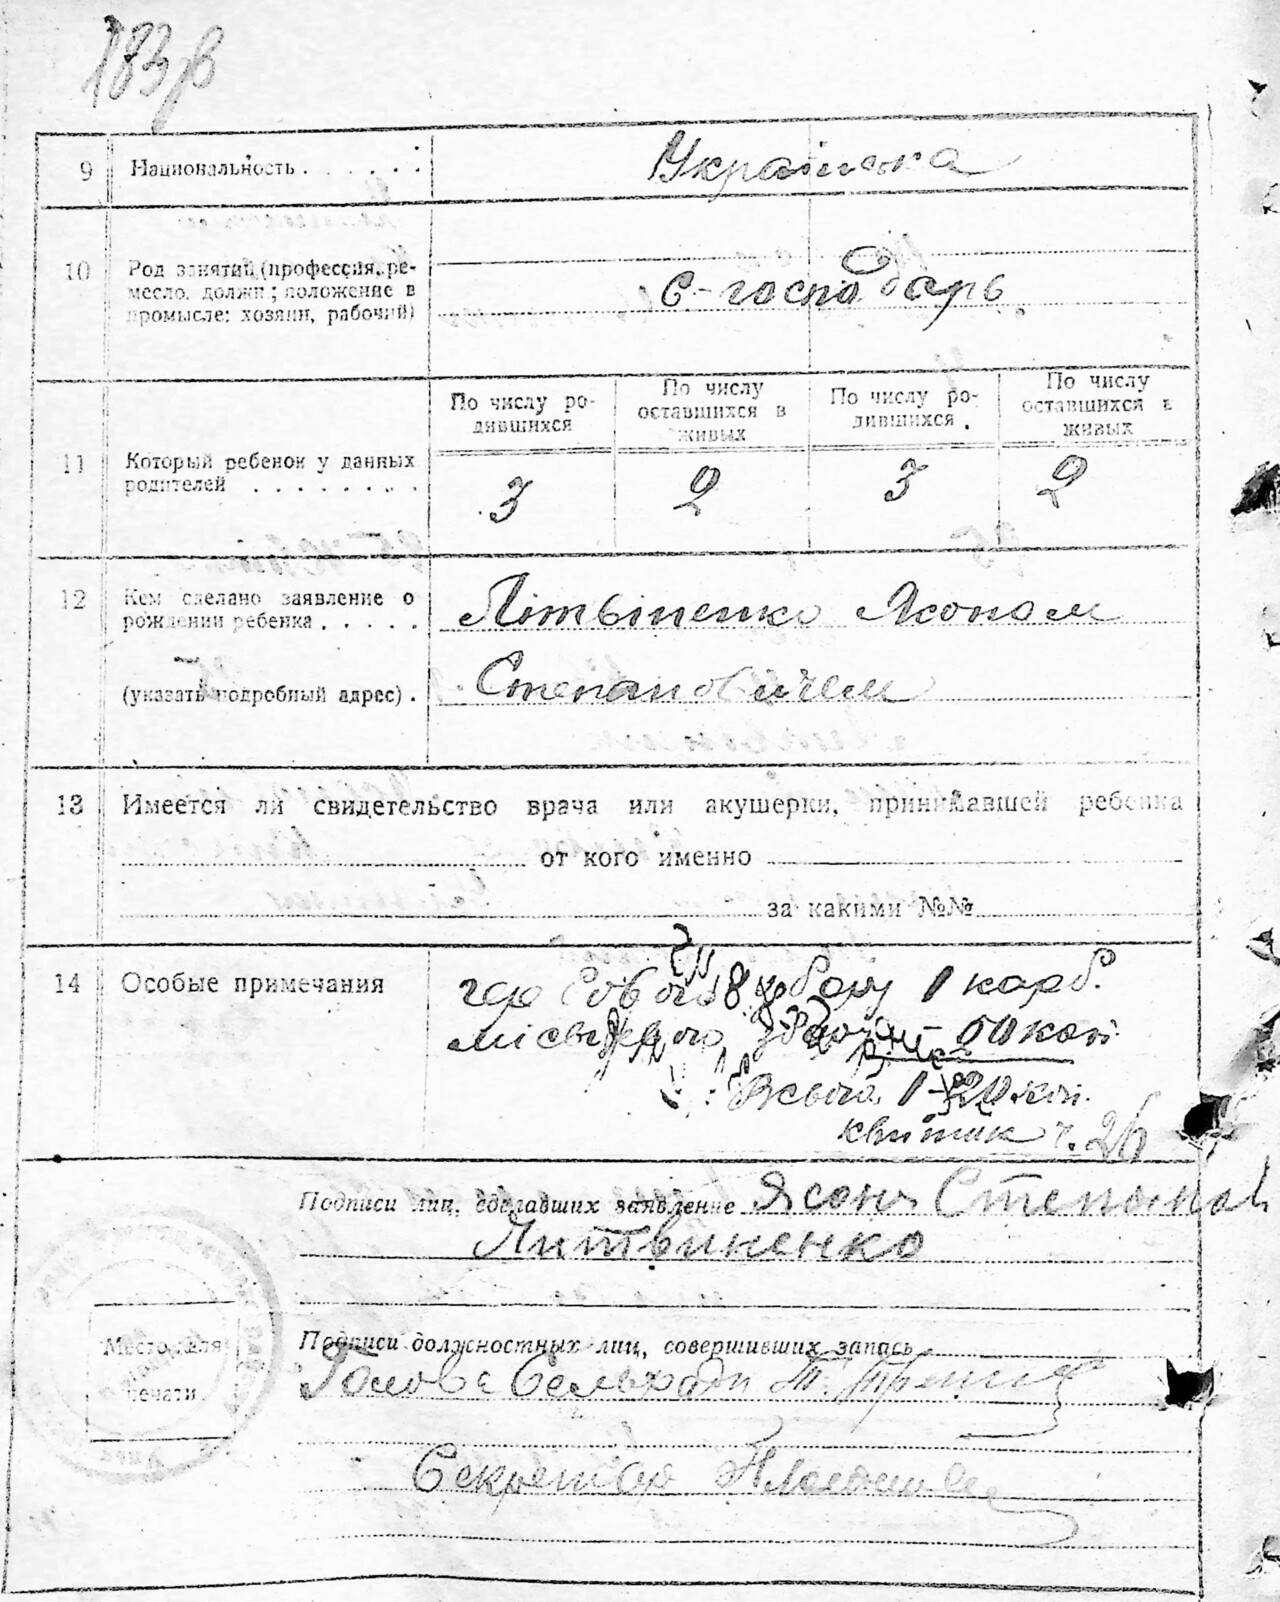 183 зв
9 Национальность . . . . . . Українська
10 Род занятий (профессия, ре-
месло, должн.; положение в
промысле: хозяин, рабочий)
С-господарь
По числу ро-
дившихся
По числу
оставшихся в
живых
По числу ро-
дившихся
По числу
оставшихся в
живых
11 Который ребенок у данных
родителей . . . . . . . .
3 2 3 2
12 Кем сделано заявление о
рождении ребенка . . . . .
Літвіненко Ясоном
(указать подробный адрес) . Степановічем
13 Имеется ли свидетельство врача или акушерки, принимавшей ребенка
от кого именно
за какими №№
14 Особые примечания
1 карб.
коп.
Всього 1-20 коп.
квиток ч. 26
Подписи лиц, сделавших заявление Ясон Степанов
Литвиненко
Подписи должностных лиц, совершивших запись
Место для
печати
Голова Сельради Т.
Секретар